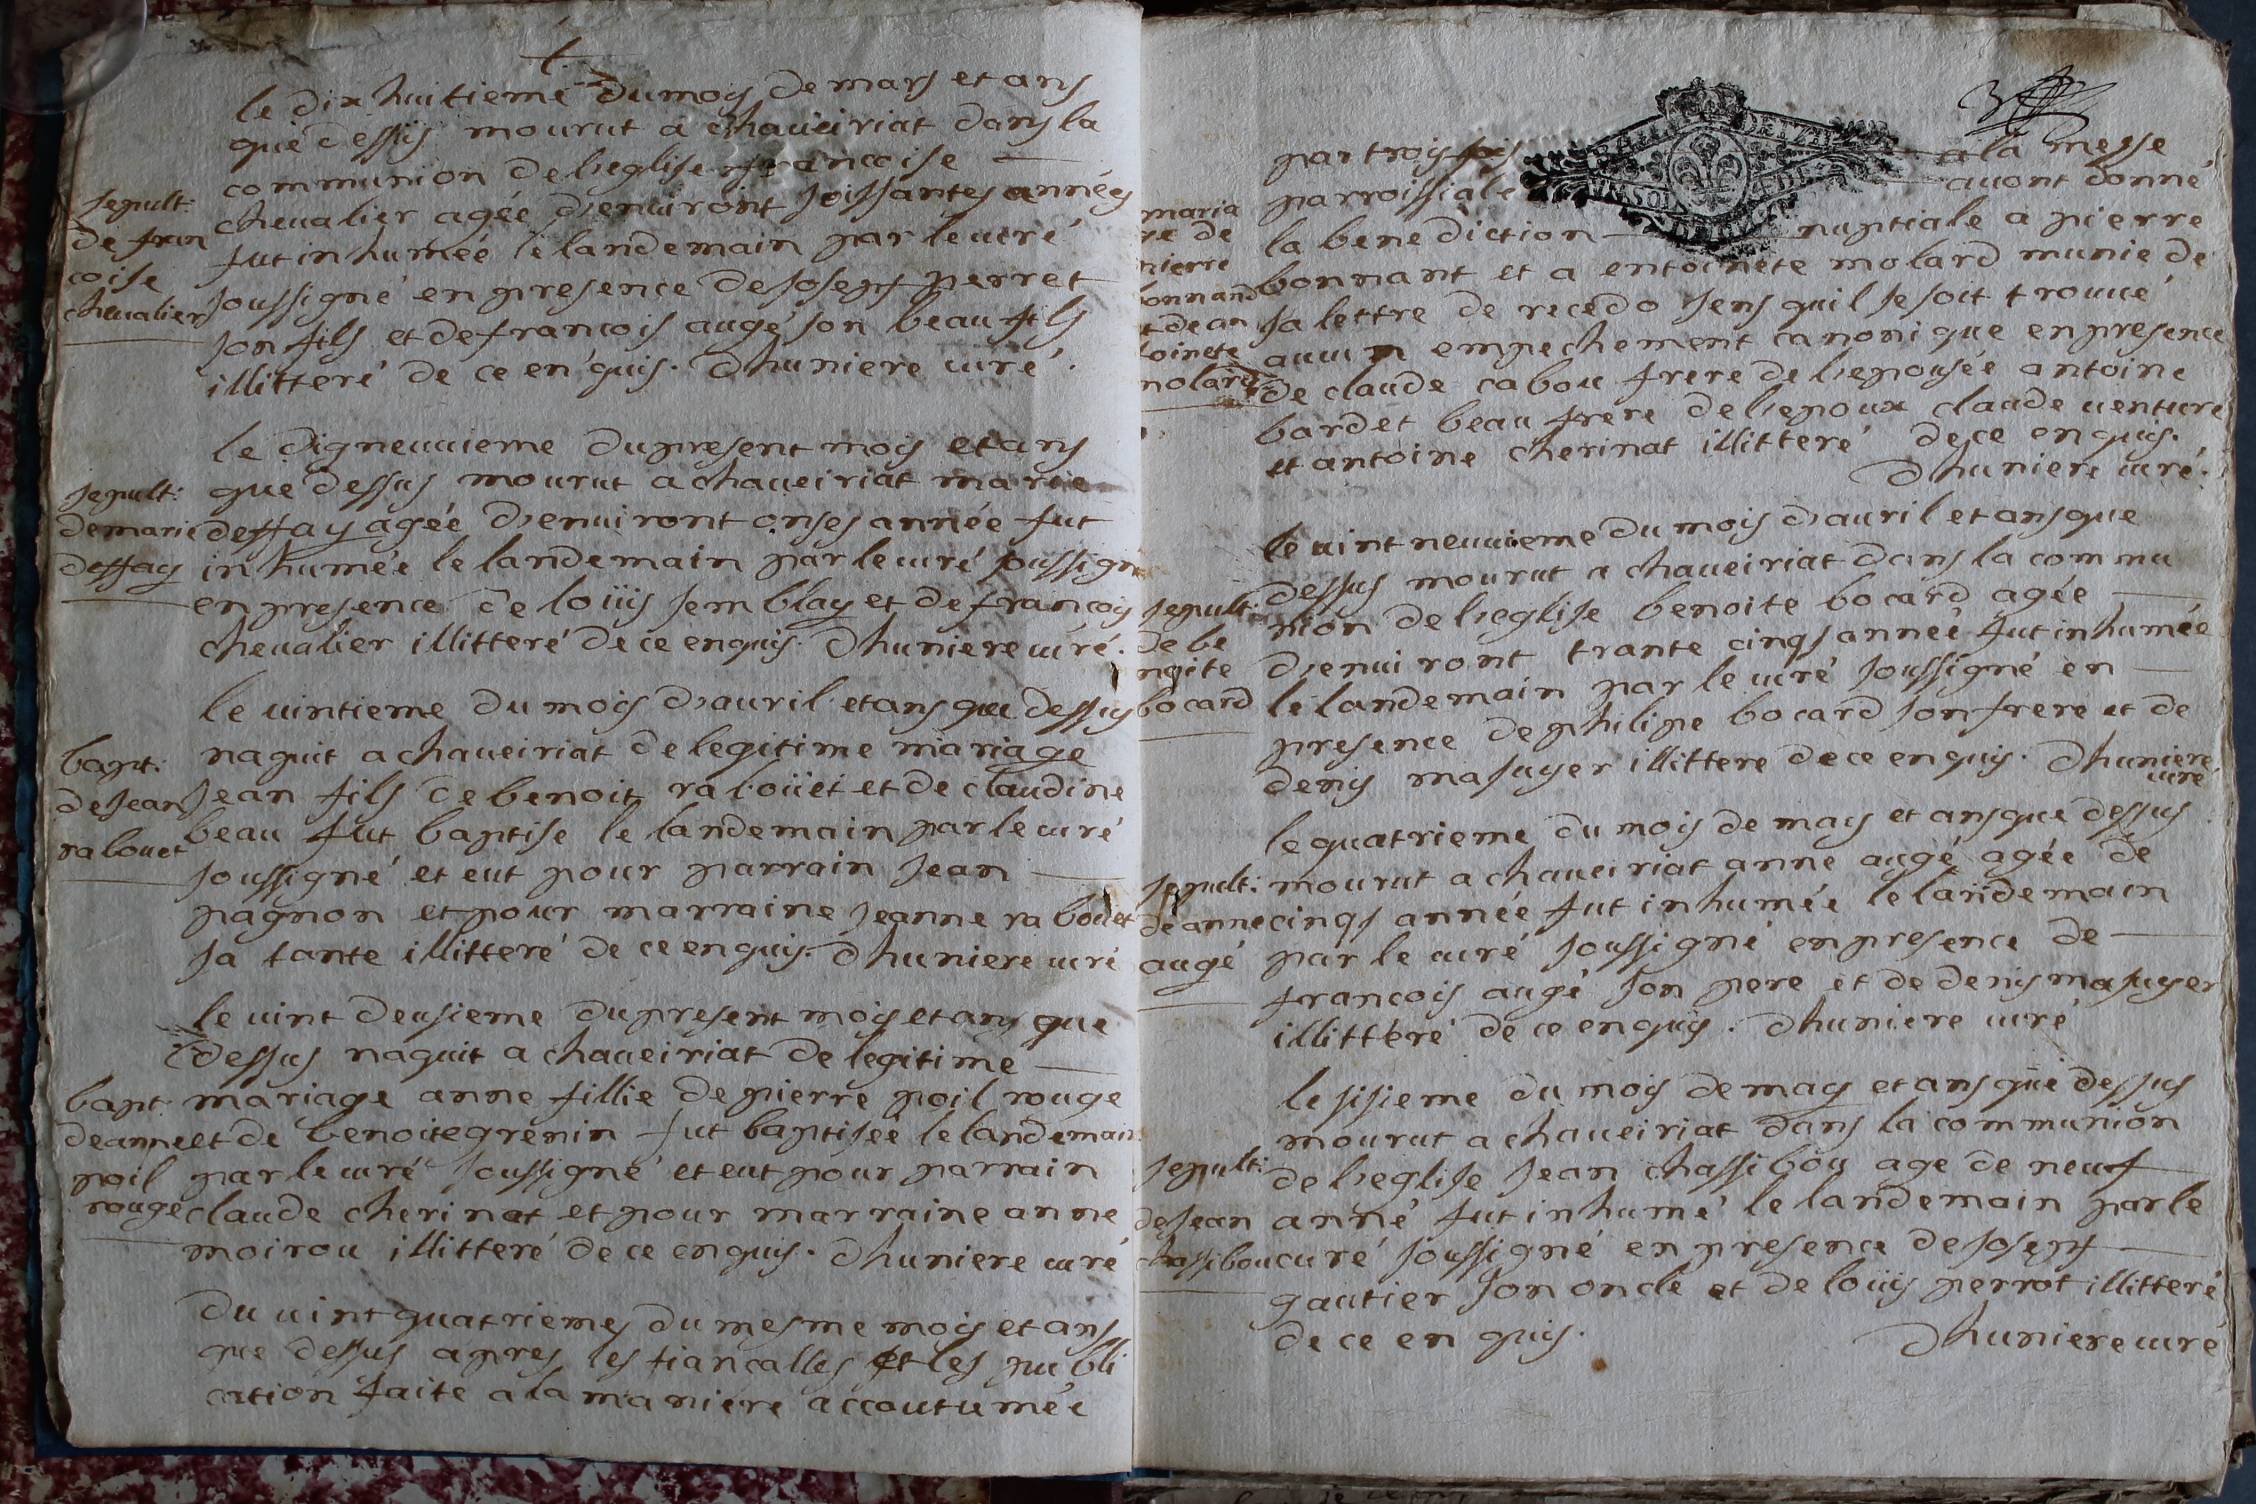 le dix huitieme du mois de mars et ans
que dessus mourut a chaveiriat dans la
communion de l'eglise francoise
chevalier agée d'environt soissantes années
fut inhumée le landemain par le curé
soussigné en presence de Joseph perret
son fils et de francois augé son beau fils
illitteré de ce enquis. Dhuniere curé.
sepult:
de fran
coise
chevalier
le digneuvieme du present mois et ans
que dessus mourut a chaveiriat marie
deffay agée d'environt onses année fut
inhumée le landemain par le curé soussigné
en presence de loüis semblay et de francois
chevalier illitteré de ce enquis. Dhuniere curé.
sepult:
de marie
deffay
le vintieme du mois d'avril et ans que dessus
naquit a chaveiriat de legitime mariage
Jean fils de benoit raboüet et de claudine
beau fut baptise le landemain par le curé
soussigné et eut pour parrain Jean
pagnon et pour marraine Jeanne rabouet
sa tante illitteré de ce enquis. Dhuniere curé
bapt:
de Jean
rabouet
le vint deusieme du present mois et ans que
dessus naquit a chaveiriat de legitime
mariage anne fillie de pierre poil rouge
et de benoite grenin fut baptisée le landemain
par le curé soussigné et eut pour parrain
claude cherinat et pour marraine anne
moirou illitteré de ce enquis. Dhuniere curé
bapt:
de anne
poil
rouge
du vint quatriemes du mesme mois et ans
que dessus apres les fiancalles et les publi
cation faite a la maniere accoutumée
par trois fois a la messe
parroissiale avont donné
la benediction nuptiale a pierre
bonnant et a entoinete molard munie de
sa lettre de recedo sens quil se soit trouvé
aucun empechement canonique en presence
de claude cabou frere de l'epousée antoine
bardet beau frere de l'epoux claude venture
et antoine cherinat illitteré de ce enquis.
Dhuniere curé.
maria
re de
pierre
bonnand
et de an
toinete
molard
le vint neuvieme du mois d'avril et ans que
dessus mourut a chaveiriat dans la commu
nion de l'eglise benoite bocard agée
d'environt trante cinqs année fut inhumée
le landemain par le curé soussigné en
presence de philipe bocard son frere et de
denis masuyer illittere de ce enquis. Dhuniere
curé
sepult:
de be
noite
bocard
le quatrieme du mois de may et ans que dessus
mourut a chaveiriat anne augé agée de
cinqs année fut inhumée le landemain
par le curé soussigné en presence de
francois augé son pere et de denis masuyer
illittéré de ce enquis. Dhuniere curé
sepult:
de anne
augé
le sisieme du mois de may et ans que dessus
mourut a chaveiriat dans la communion
de l'eglise Jean chassibou age de neuf
anné fut inhumé le landemain par le
curé soussigné en presence de Joseph
gautier son oncle et de loüis perrot illitteré
de ce en quis. Dhuniere curé
sepult:
de Jean
chassibou